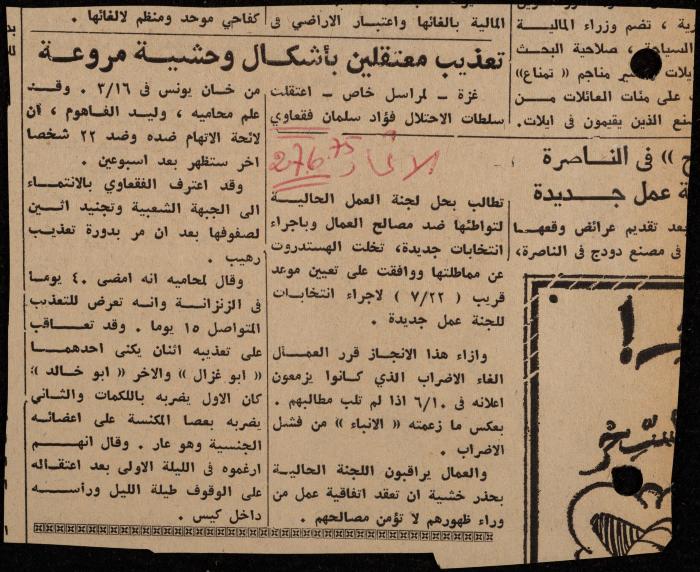 المالية بالغائها واعتبار الاراضي في
كفاحي موحد ومنظم لالغائها .
تعذيب معتقلين بأشكال وحشية مروعة
غزة - لمراسل خاص - اعتقلت
سلطات الاحتلال فؤاد سلمان فقعاوي
من خان يونس في ٣/١٦ . وقد
علم محاميه ، وليد الفاهوم ، أن
لائحة الاتهام ضده وضد ٢٢ شخصا
اخر ستظهر بعد اسبوعين .
وقد اعترف الفقعاوي بالانتماء
الى الجبهة الشعبية وتجنيد اثنين
لصفوفها بعد ان مر بدورة تعذيب
رهيب .
وقال لمحاميه انه امضى ٤٠ يوما
في الزنزانة وانه تعرض للتعذيب
المتواصل ١٥ يوما . وقد تعاقب
على تعذيبه اثنان يكنى احدهما
« ابو غزال » والاخر « ابو خالد » :
كان الاول يضربه باللكمات والثاني
يضربه بعصا المكنسة على اعضائه
الجنسية وهو عار . وقال انهم
ارغموه في الليلة الاولى بعد اعتقاله
على الوقوف طيلة الليل ورأسه
داخل كيس .
2.76.75
تطالب بحل لجنة العمل الحالية
لتواطئها ضد مصالح العمال وباجراء
انتخابات جديدة، تخلت الهستدروت
عن مماطلتها ووافقت على تعيين موعد
قريب ( ٧/٢٢ ) لاجراء انتخابات
للجنة عمل جديدة .
وازاء هذا الانجاز قرر العمال
الغاء الاضراب الذي كانوا يزمعون
اعلانه في ٦/١٠ اذا لم تلب مطالبهم .
بعكس ما زعمته « الانباء » من فشل
الاضراب .
والعمال يراقبون اللجنة الحالية
بحذر خشية ان تعقد اتفاقية عمل من
وراء ظهورهم لا تؤمن مصالحهم .
رية ، تضم وزراء المالية
السياحة ، صلاحية البحث
مناجم « تمناع »
على مئات العائلات من
نع الذين يقيمون في ايلات .
ح » في الناصرة
ة عمل جديدة
بعد تقديم عرائض وقعها
في مصنع دودج في الناصرة،